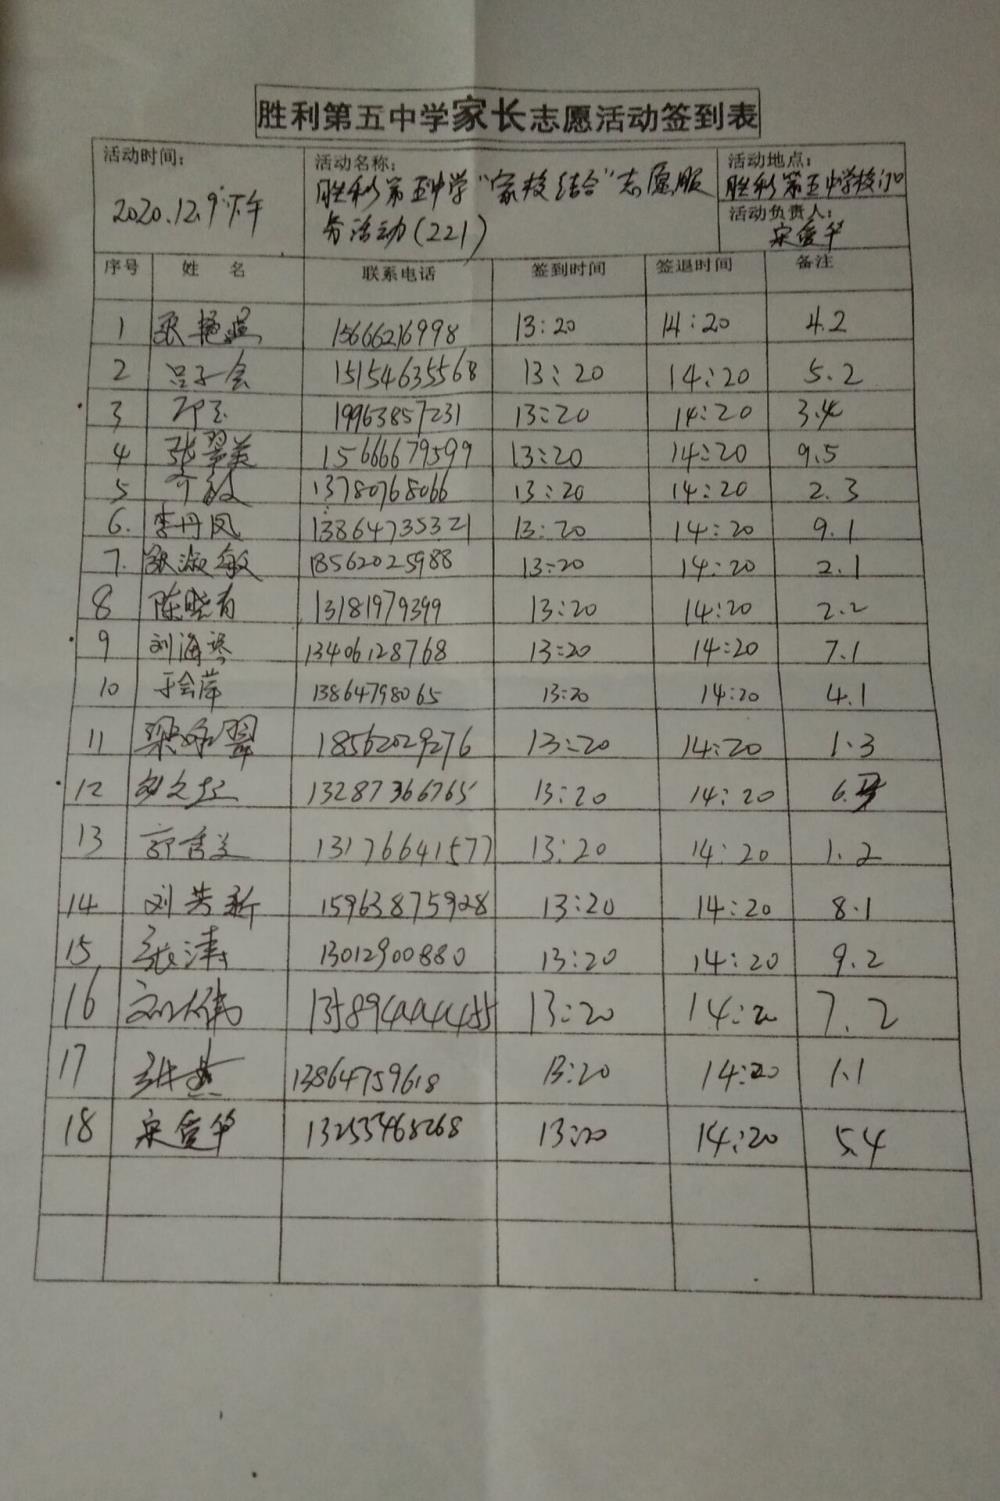 胜利第五中学家长志愿活动签到表
活动时间:
2020.12.9下午
活动名称:
胜利第五中学"家校结合"志愿服
务活动(221)
活动地点:
胜利第五中学校门口
活动负责人:
宋爱华
序号 姓 名 联系电话 签到时间 签退时间 备注
1 张艳 15666216998 13:20 14:20 4.2
2 吕子会 15154635568 13:20 14:20 5.2
3 19963857231 13:20 14:20 3.4
4 张翠美 15666679599 13:20 14:20 9.5
5 齐敏 13780768066 13:20 14:20 2.3
6. 李丹凤 13864735321 13:20 14:20 9.1
7. 张淑敏 18562025988 13:20 14:20 2.1
8 陈晓育 13181979399 13:20 14:20 2.2
9 刘海琴 13406128768 13:20 14:20 7.1
10 于会萍 13864798065 13:20 14:20 4.1
11 梁翠 18562029276 13:20 14:20 1.3
12 13287366765 13:20 14:20 6.
13 郭秀美 13176641577 13:20 14:20 1.2
14 刘芳新 15963875928 13:20 14:20 8.1
15 张涛 13012900880 13:20 14:20 9.2
16 刘大伟 13:20 14:20 7.2
17 张燕 13864759618 13:20 14:20 1.1
18 宋爱华 13255468268 13:20 14:20 5.4